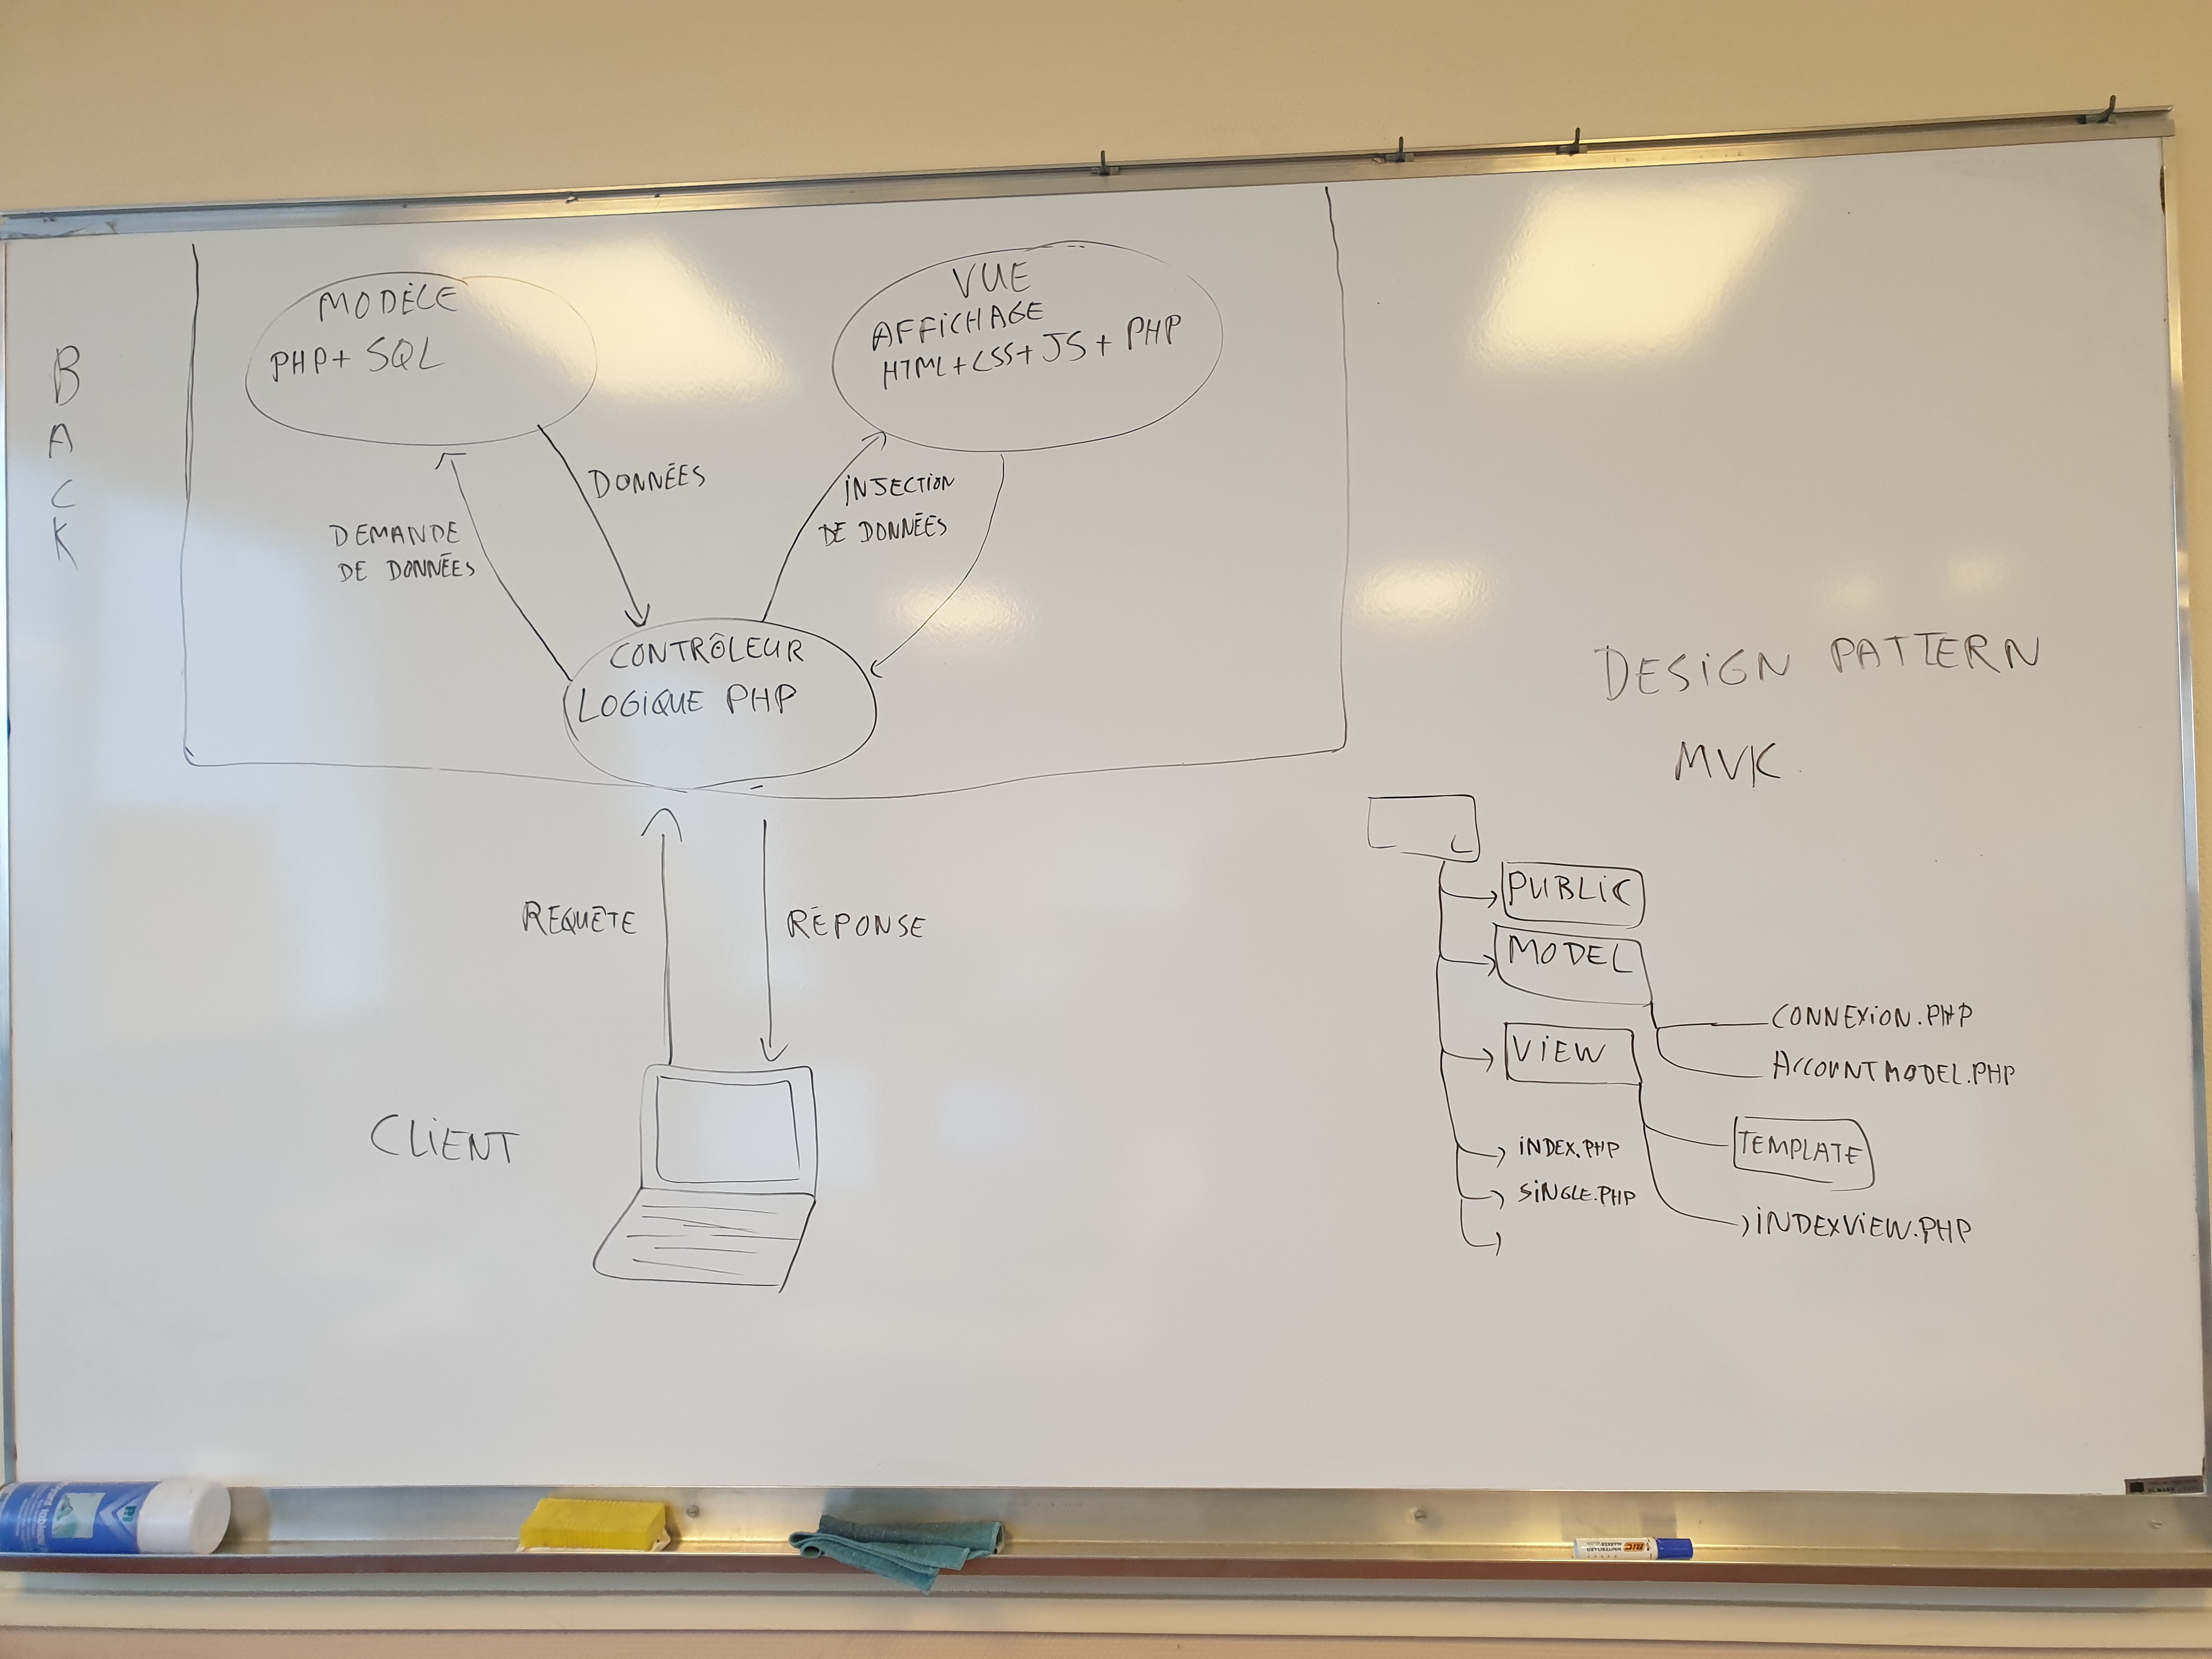 BACK
MODÈLE
PHP + SQL
VUE
AFFICHAGE
HTML + CSS + JS + PHP
DONNÉES
DEMANDE
DE DONNÉES
INJECTION
DE DONNÉES
CONTRÔLEUR
LOGIQUE PHP
REQUÊTE
RÉPONSE
CLIENT
DESIGN PATTERN
MVK
PUBLIC
MODEL
CONNEXION.PHP
ACCOUNTMODEL.PHP
VIEW
TEMPLATE
INDEXVIEW.PHP
INDEX.PHP
SINGLE.PHP
BIC